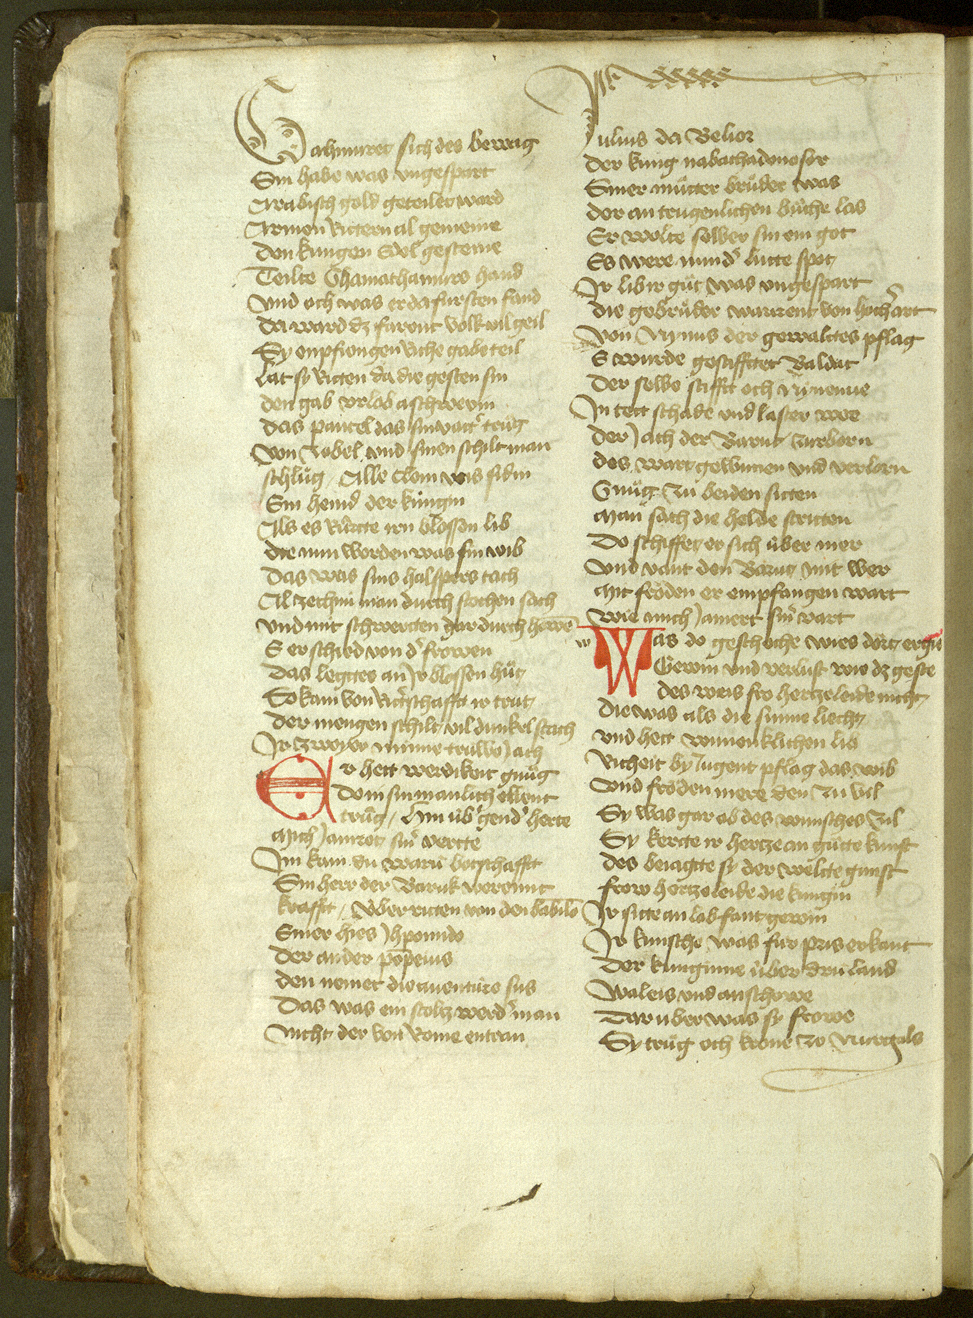 Gachmuret sich des bewag
Sin habe was vngespart
Arabisch gold geteilet ward
Armen Rittern al gemeine
Den kungen Edel gesteine
Teilte Ghamachmurs hand
Vnd och was er da fursten fand
da ward dz farent volk vil geil
Sy enpfiengen Riche gabe teil
Lat sy Riten da die gesten sin
den gab vrlob aschwein
das pantel das sin vatt' trůg
Von Zobel vnd sinen schilt man
schlůg / Alle Clein wis sidin
Sin hemd der kůngin
Als es Růrte irn blossen lib
die nun worden was sin wib
Das was sins halspers tach
Al zechin man durch stochen sach
Vnd mit schwerten gar durch howē
E er schied von d' frowen
Das legtes an Jr blossen hůt
So kam von Ritt'schafft ir trut
Der mengen schilt vil dunkel stach
Jr zweyer minne trůwe Jach
Er hett werdikeit gnůg
Do in sin manlich ellent
trůg / Hin ůb' gend' herte
Mich Jamret sin' vertte
Jm kam du waru botschafft
Sin herr der Baruk wer mit
krafft / Vber ritten von den babilō
Einer hies Jhpomido
Der ander pompeius
den nemet die auentůre sus
Das was ein stoltz werd' man
Nicht der von Rome entran
Julius da Belior
Der kung nabachadonosor
Siner můtter brůder was
der an trugenlichen bůche las
Er wolte selber sin ein got
Es were nun d' lutte spot
Jr lib ir gůt was vngespart
die gebrůder warrent von hoch' art
Von Nynus der gewaltes pflag
E wurde gestifftet Baldac
Der selbe stifft och Ninenue
Jn tett schade vnd laster we
der Jach der Baruc vrborn
des wart gewunnen vnd verlorn
Gnůg zů beiden sitten
Man sach die helde stritten
Do schiffet er sich ůber mer
Vnd vant den Baruc mit wer
Mit frőden er empfangen wart
Wie mich Jamert sin' vart
Was do geschche wies dort ergů
Gewin vnd verlust wie dz geste
des weis fro hertzeleide nicht
Die was als die sunne liecht
Vnd hett wunnenklichen lib
Richeit by Jugent pflag das wib
Vnd frőden mere den zu vil
Sy was gar ob des wunsches zil
Sy kerte ir hertze an gůtte kunst
des beiagte sy der welte gunst
frow hertzeleide die kungin
Jr sitte an lob fant gewin
Jr kunsche was fur pris erkant
Der kunginne ůber dru land
Waleis vnd anschowe
Dar uber was sy frowe
Sy trůg och krone zo Nurgals